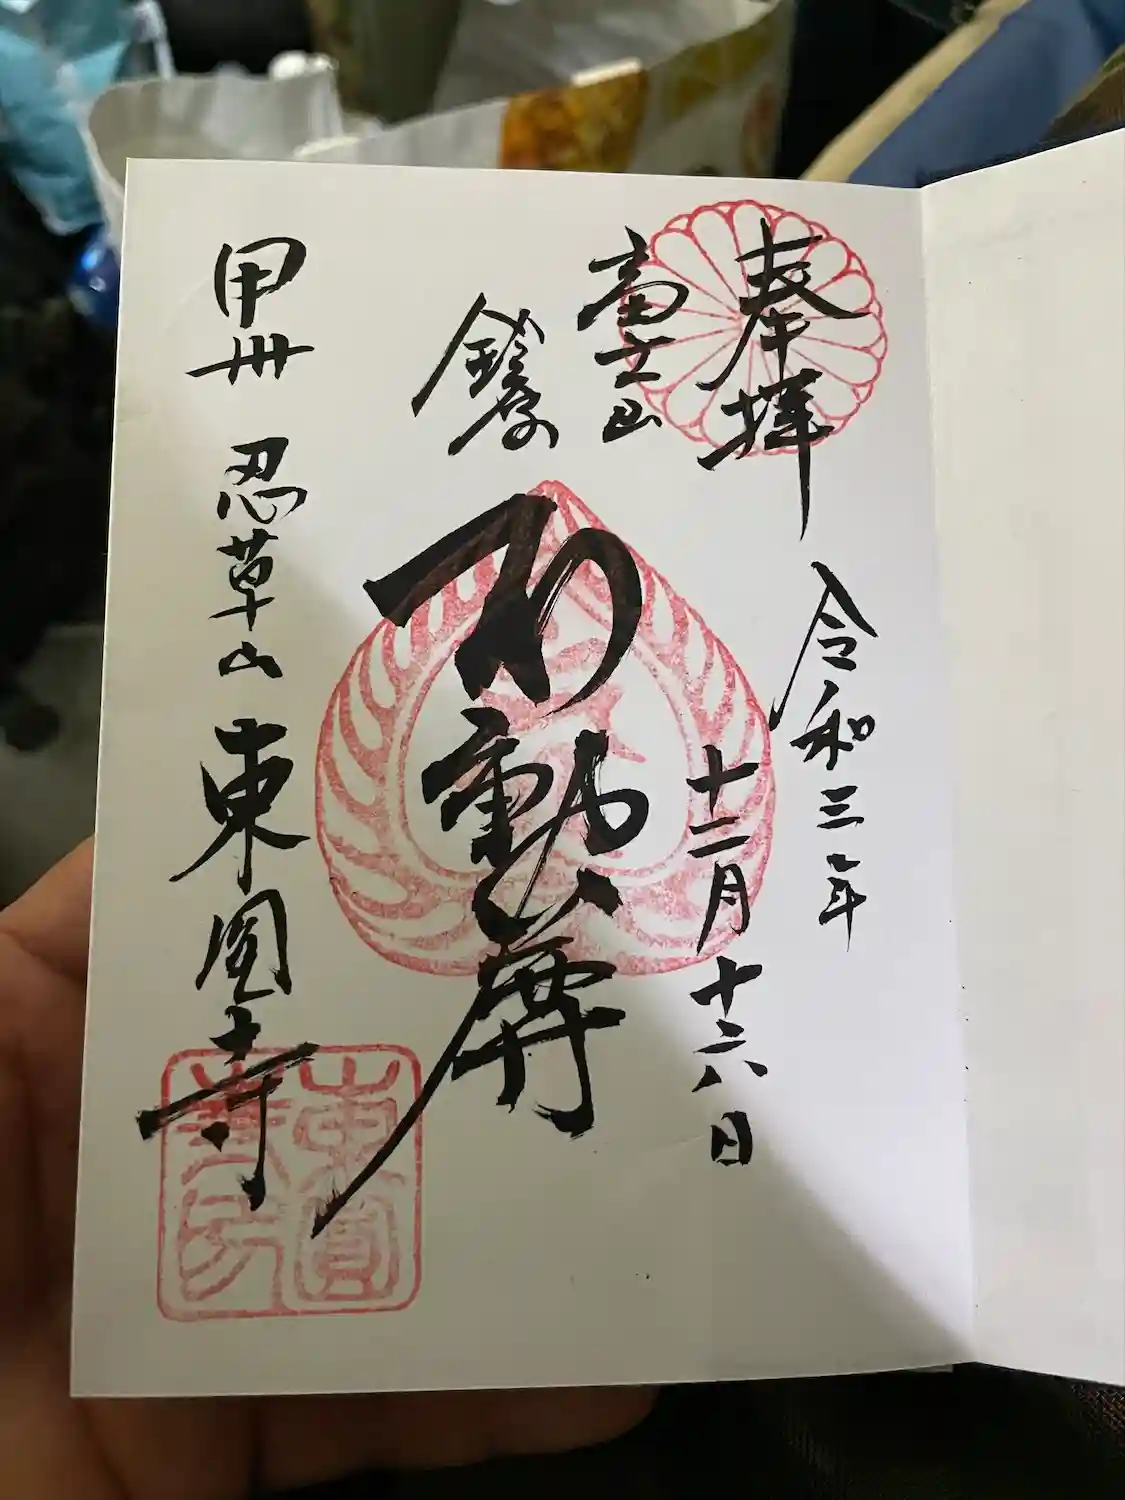 奉拝
令和三年
十二月十六日
富士山
鎮守
不動尊
甲州 忍草山 東圓寺